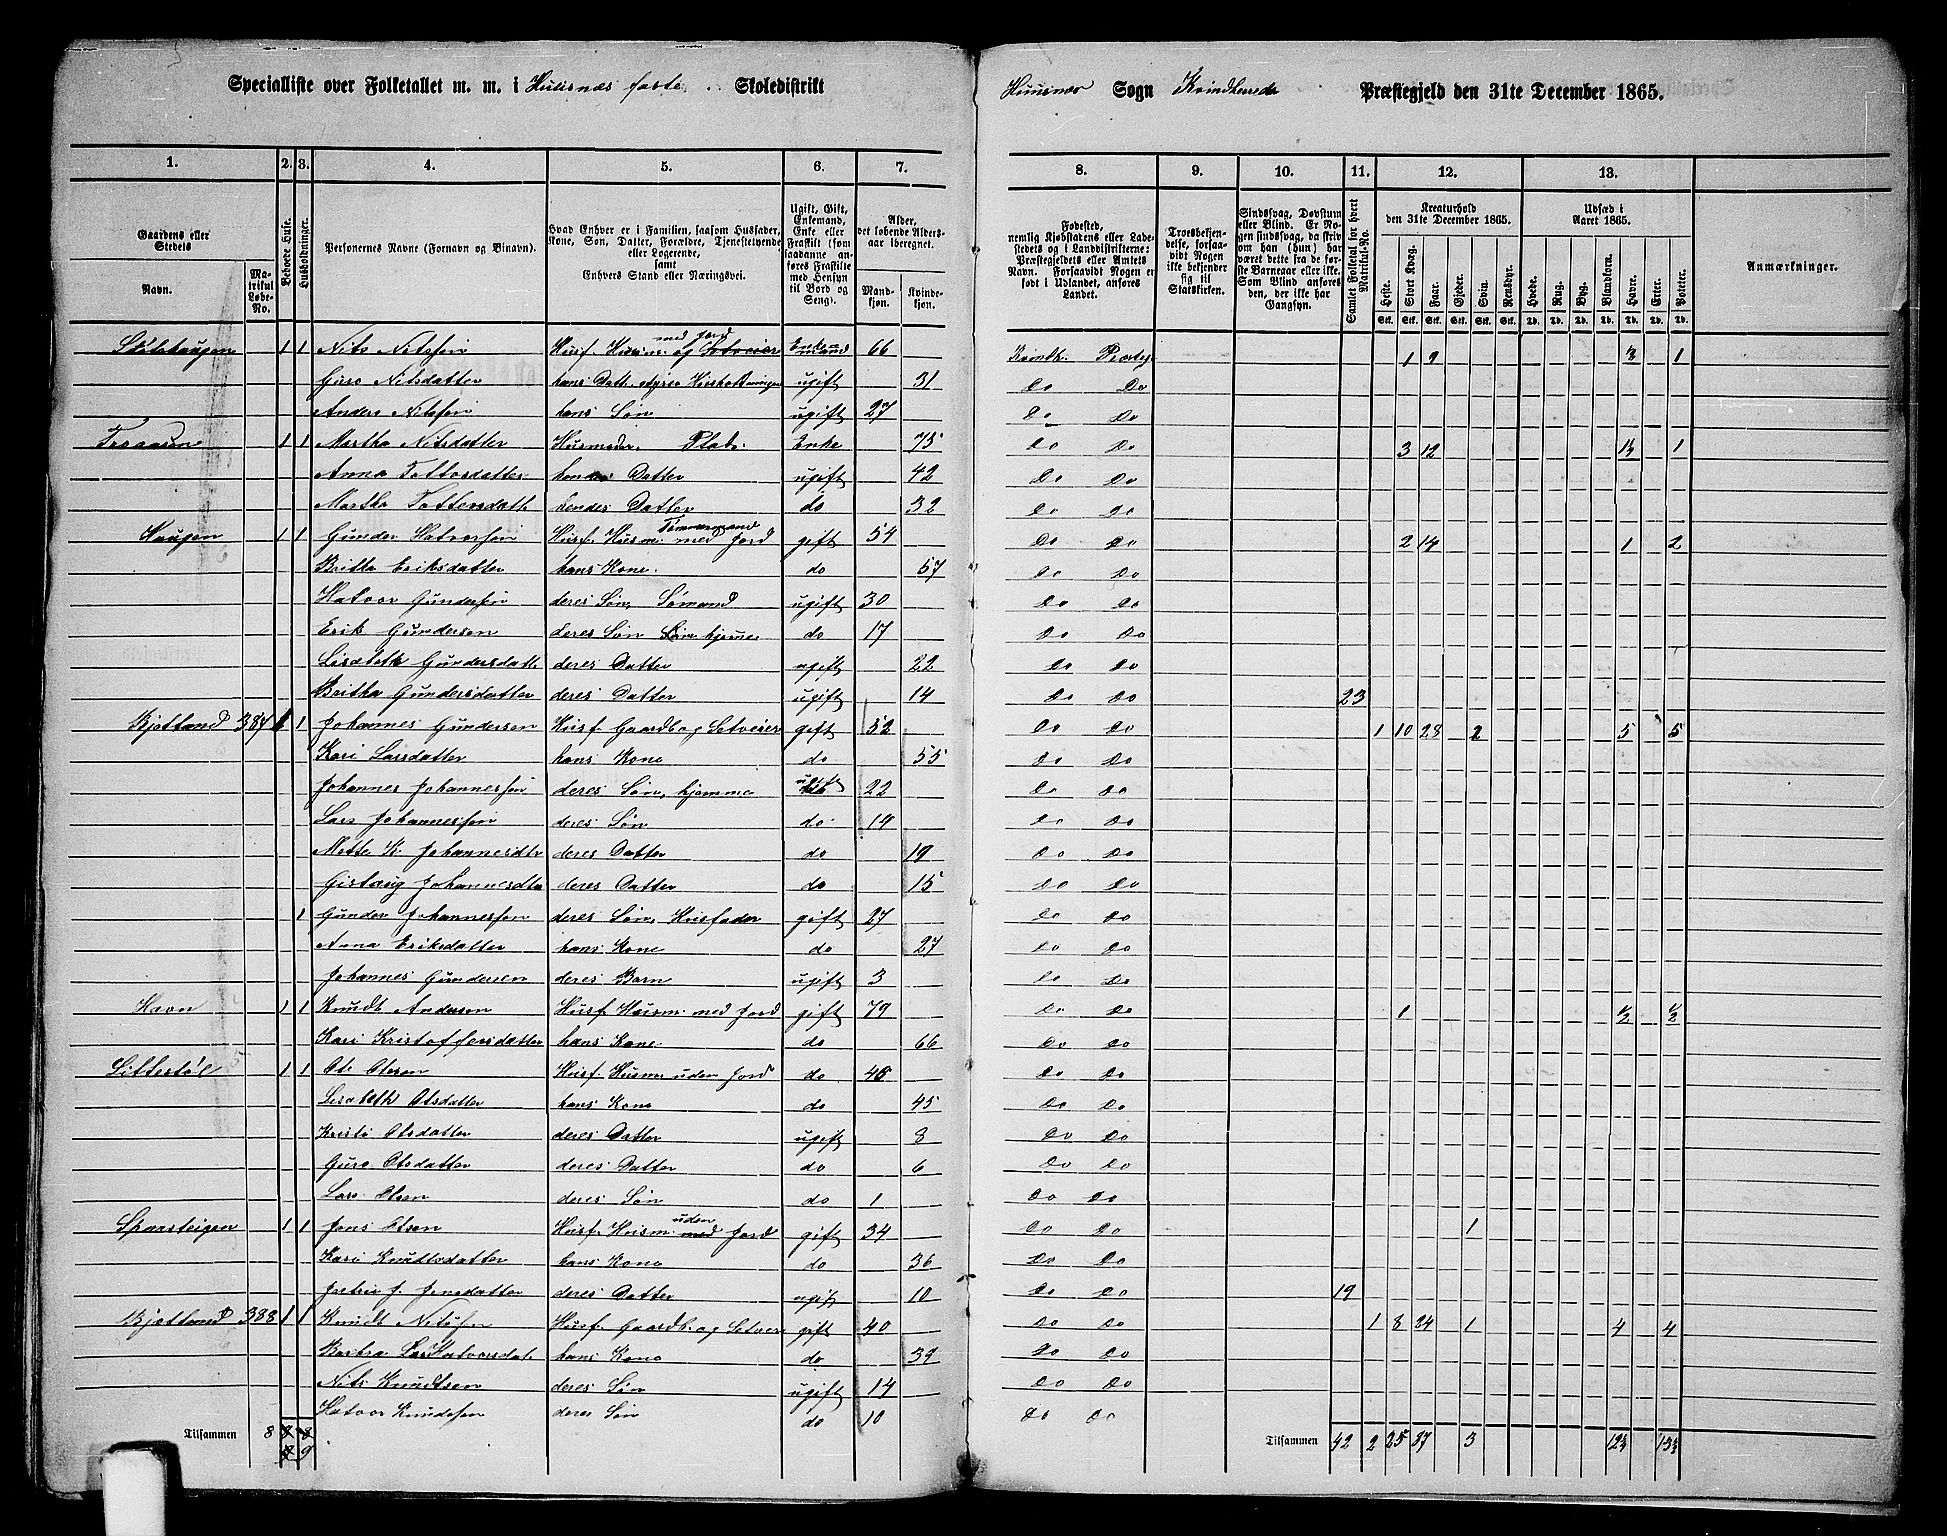 Specialliste over Folketallet m. m. i Huusnæs faste Skoledistrikt
Huusnæs Sogn Kvindherreds Præstegjeld den 31te December 1865.
1. 2. 3. 4. 5. 6. 7. 8. 9. 10. 11. 12. 13.
Gaardens eller Stedets Navn.
Matrikul Løbe-No.
Beboede Huse.
Husholdninger.
Personernes Navne (Fornavn og Binavn).
Hvad Enhver er i Familien, saasom Husfader, Kone, Søn, Datter, Forældre, Tjenestetyende eller Logerende, samt Enhvers Stand eller Næringsvei.
Ugift, Gift, Enkemand, Enke eller Fraskilt (som saadanne anføres Fraskilte med Hensyn til Bord og Seng).
Alder, det løbende Aldersaar iberegnet.
Mandkjøn. Kvindekjøn.
Fødested, nemlig Kjøbstadens eller Ladestedets og i Landdistrikterne: Præstegjeldets eller Amtets Navn. Forsaavidt Nogen er født i Udlandet, anføres Landet.
Troesbekjendelse, forsaavidt Nogen ikke bekjender sig til Statskirken.
Sindssvag, Døvstum eller Blind. Er Nogen sindssvag, da skrives om han (hun) har været dette fra de første Barneaar eller ikke. Som Blind anføres den, der ikke har Gangsyn.
Samlet Folketal for hvert Matrikul-No.
Kreaturhold den 31te December 1865.
Heste. Stort Kvæg. Faar. Gjeder. Svin. Rensdyr.
Udsæd i Aaret 1865.
Hvede. Rug. Byg. Blandkorn. Havre. Erter. Poteter.
Anmærkninger.
1 1 Nils Nilssen Husf. Husm. med Jord og Selveier Enkemand 66 Kvindh. Præstg. 1 9 1
Guro Nilsdatter hans Datt. styrer Husholdningen ugift 31 Do Do
Anders Nilssen hans Søn ugift 27 Do Do
1 1 Martha Nilsdatter Husmoder. Enke 75 Do Do 3 12 1
Anna hendes Datter ugift 42 Do Do
Martha hendes Datter do 32 Do Do
Haugen 1 1 Gunder Halvorsen Husf. Husm. med Jord Tømmermand gift 54 Do Do 2 14 1 2
Britha Eriksdatter hans Kone. do 57 Do Do
Halvor Gundersen deres Søn, Sømand ugift 30 Do Do
Erik Gundersen deres Søn hjeme do 17 Do Do
Lisabeth Gundersdatt. deres Datter ugift 22 Do Do
Britha Gundersdatter deres Datter ugift 14 Do Do 23
Kjetland 387 1 1 Johannes Gundersen Husf. Gaardb og Selveier gift 52 Do Do 1 10 28 2 5 5
Kari Larsdatter hans Kone do 55 Do Do
Johannes Johannessen deres Søn, hjemme ugift 22 Do Do
Lars Johannessen deres Søn do 19 Do Do
Mette K. Johannesdtr deres Datter do 19 Do Do
Gislaug Johannesdtr deres Datter do 15 Do Do
1 Gunder Johannessen deres Søn, Husfader gift 27 Do Do
Anna Eriksdatter hans Kone do 27 Do Do
Johannes Gundersen deres Barn ugift 3 Do Do
Havn 1 1 Knudt Andersen Husf. Husm. med Jord gift 79 Do Do 1 1/2 1/2
Kari Kristoffersdatter hans Kone do 66 Do Do
Littestøl 1 1 Ole Olsen Husf. Husm. uden Jord do 45 Do Do
Lisabeth Olsdatter hans Kone do 45 Do Do
Kristi Olsdatter deres Datter ugift 8 Do Do
Guro Olsdatter deres Datter do 6 Do Do
Lars Olsen deres Søn do 1 Do Do
Skarsteigen 1 1 Jens Olsen Husf. Husm. uden med Jord gift 34 Do Do 1
Kari Knudtsdatter hans Kone do 36 Do Do
J. Jensdatter deres Datter ugift 10 Do Do 19
Kjetland 388 1 1 Knudt Nilssen Husf. Gaardb. og Selveier gift 40 Do Do 1 8 24 1 4 4
Barbra Halvorsdat. hans Kone do 39 Do Do
Nils Knudtsen deres Søn ugift 14 Do Do
Halvor Knudtsen deres Søn do 10 Do Do
Tilsammen 8 8 9 Tilsammen 42 2 25 87 3